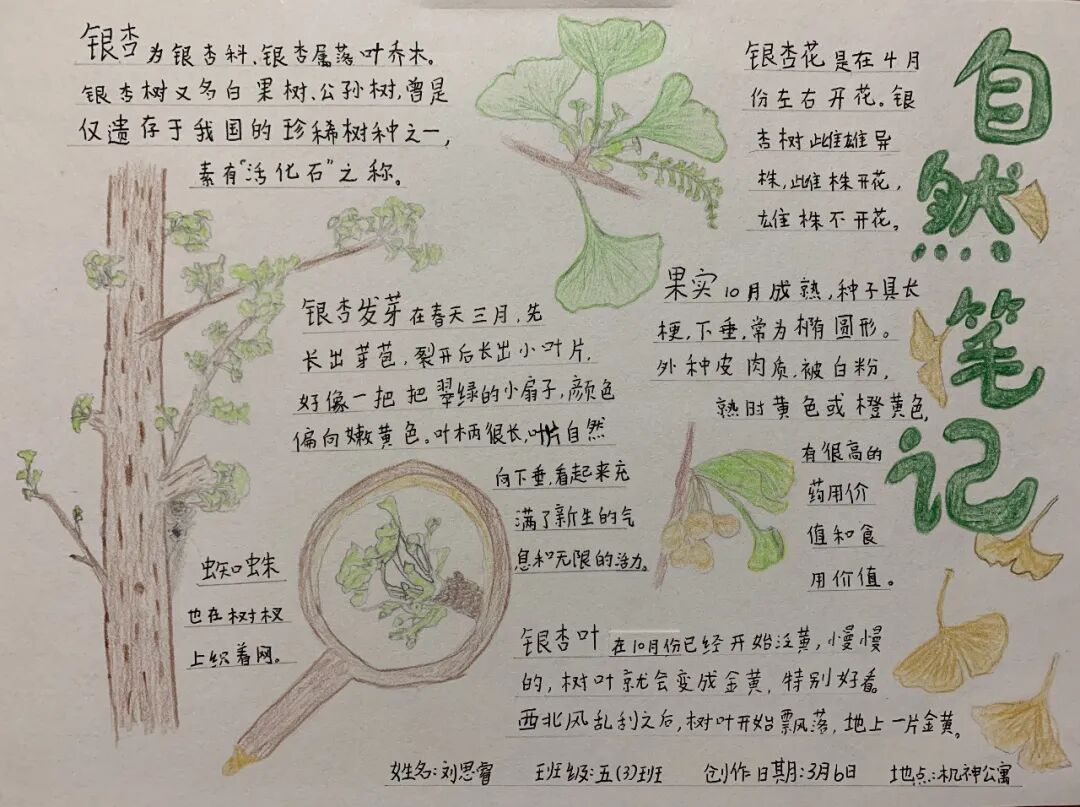 自然笔记
银杏为银杏科、银杏属落叶乔木。
银杏树又名白果树、公孙树,曾是
仅遗存于我国的珍稀树种之一,
素有“活化石”之称。
银杏花是在4月
份左右开花。银
杏树雌雄异
株,雌株开花,
雄株不开花。
银杏发芽在春天三月,先
长出芽苞,裂开后长出小叶片,
好像一把把翠绿的小扇子,颜色
偏向嫩黄色。叶柄很长,叶片自然
向下垂,看起来充
满了新生的气
息和无限的活力。
果实10月成熟,种子具长
梗,下垂,常为椭圆形。
外种皮肉质,被白粉,
熟时黄色或橙黄色,
有很高的
药用价
值和食
用价值。
蜘蛛
也在树杈
上织着网。
银杏叶在10月份已经开始泛黄,慢慢
的,树叶就会变成金黄,特别好看。
西北风乱刮之后,树叶开始飘落,地上一片金黄。
姓名:刘思睿 班级:五(3)班 创作日期:3月6日 地点:机神公寓